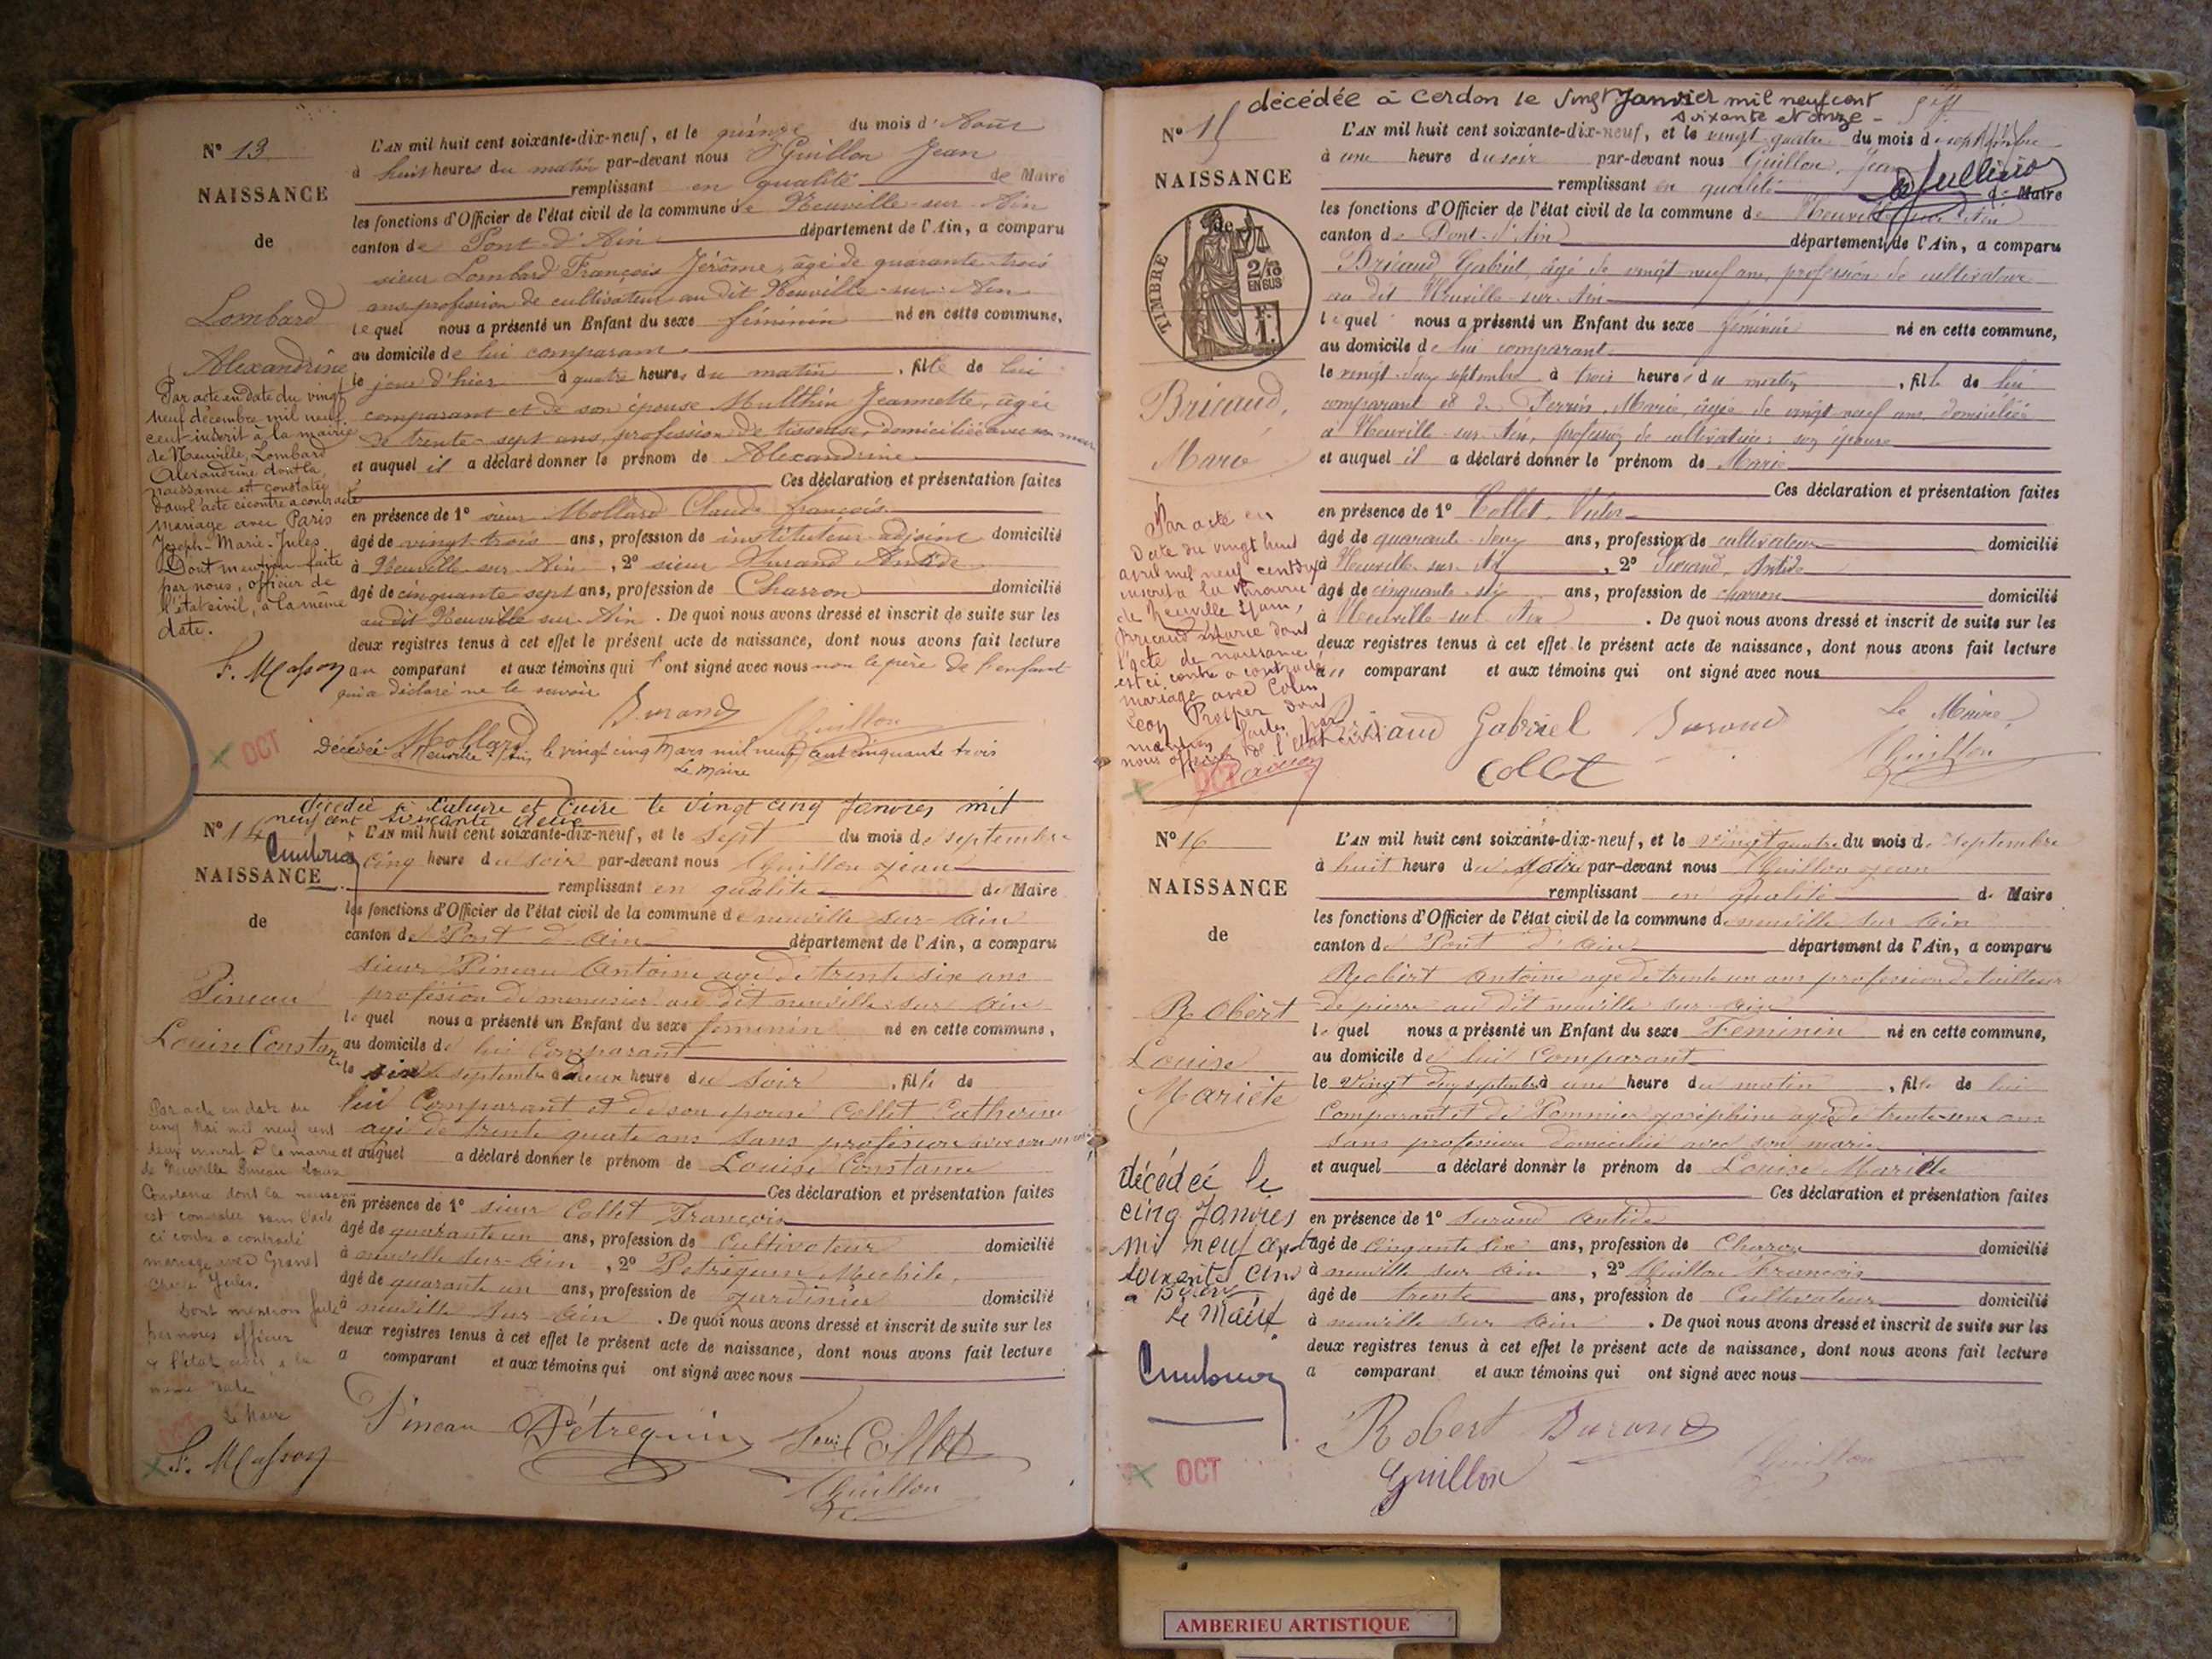 N° 13
NAISSANCE
de
Lombard
Alexandrine
L'AN mil huit cent soixante-dix-neuf, et le quinze du mois d'Août
à huit heures du matin par-devant nous Guillon Jean
remplissant en qualité de Maire
les fonctions d'Officier de l'état civil de la commune de Neuville-sur-Ain
canton de Pont-d'Ain département de l'Ain, a comparu
sieur Lombard François Jérôme, âgé de quarante-trois
ans profession de cultivateur au dit Neuville-sur-Ain
lequel nous a présenté un Enfant du sexe féminin né en cette commune,
au domicile de lui comparant
le jour d'hier à quatre heures du matin, fille de lui
comparant et de son épouse Jeannette, âgée
de trente-sept ans, profession de tisseuse, domiciliée avec son mari
et auquel il a déclaré donner le prénom de Alexandrine
Ces déclaration et présentation faites
en présence de 1° sieur Mollard Claude françois
âgé de vingt-trois ans, profession de instituteur adjoint domicilié
à Neuville-sur-Ain, 2° sieur Durand Antide
âgé de cinquante sept ans, profession de Charron domicilié
au dit Neuville sur Ain. De quoi nous avons dressé et inscrit de suite sur les
deux registres tenus à cet effet le présent acte de naissance, dont nous avons fait lecture
au comparant et aux témoins qui l'ont signé avec nous non le père de l'enfant
qui a déclaré ne le savoir
Durand
Mollard Guillon
Par acte en date du vingt
neuf décembre mil neuf
cent inscrit à la mairie
de Neuville, Lombard
Alexandrine dont la
naissance est constatée
dans l'acte ci contre a contracté
mariage avec Paris
Joseph-Marie-Jules
Dont mention faite
par nous, officier de
l'état civil, à la même
date.
F. Masson
OCT
Décédée à Neuville s/Ain le vingt cinq Mars mil neuf cent cinquante trois
Le Maire
décédée à Caluire et Cuire le vingt cinq Janvier mil
neuf cent soixante deux
N° 14
NAISSANCE
de
Pineau
Louise Constance
L'AN mil huit cent soixante-dix-neuf, et le sept du mois de septembre
cinq heure du soir par-devant nous Guillon jean
remplissant en qualité de Maire
les fonctions d'Officier de l'état civil de la commune de neuville sur-Ain
canton de Pont d'ain département de l'Ain, a comparu
sieur Pineau Antoine agé de trente six ans
profesion de menusier au dit neuville sur ain
lequel nous a présenté un Enfant du sexe feminin né en cette commune,
au domicile de lui Comparant
le six septembre à deux heure du soir, fille de
lui Comparant et de son epouse Collet Catherine
agé de trente quate ans sans profesion avec son mari
et auquel a déclaré donner le prénom de Louise Constance
Ces déclaration et présentation faites
en présence de 1° sieur Collet François
âgé de quarante un ans, profession de Cultivateur domicilié
à neuville sur-Ain, 2° Petrequin Michile
âgé de quarante un ans, profession de jardinier domicilié
à neuville sur Ain. De quoi nous avons dressé et inscrit de suite sur les
deux registres tenus à cet effet le présent acte de naissance, dont nous avons fait lecture
a comparant et aux témoins qui ont signé avec nous
Pineau Pétrequin Collet
Guillon
Par acte en date du
cinq Mai mil neuf cent
deux inscrit à la mairie
de Neuville Pineau Louise
Constance dont la naissance
est constatée dans l'acte
ci contre a contracté
mariage avec Granet
Jules.
Dont mention faite
par nous officier
de l'état civil à la
même date
Le Maire
F. Masson
décédée à Cerdon le vingt Janvier mil neuf cent
soixante et onze -
N° 15
NAISSANCE
de
TIMBRE
2/10
EN SUS
Bricaud,
Marie
L'AN mil huit cent soixante-dix-neuf, et le vingt quatre du mois de septembre
à une heure du soir par-devant nous Guillon, Jean
remplissant en qualité de Maire
les fonctions d'Officier de l'état civil de la commune de Neuville sur Ain
canton de Pont-d'Ain département de l'Ain, a comparu
Bricaud Gabriel, âgé de vingt neuf ans, profession de cultivateur
au dit Neuville-sur-Ain
lequel nous a présenté un Enfant du sexe féminin né en cette commune,
au domicile de lui comparant
le vingt deux septembre à trois heures du matin, fille de lui
comparant et de Perrin, Marie, âgée de vingt neuf ans, domiciliée
à Neuville-sur-Ain, profession de cultivatrice, son épouse
et auquel il a déclaré donner le prénom de Marie
Ces déclaration et présentation faites
en présence de 1° Collet, Victor
âgé de quarante-deux ans, profession de cultivateur domicilié
à Neuville-sur-Ain, 2° Durand, Antide
âgé de cinquante six ans, profession de charron domicilié
à Neuville sur Ain. De quoi nous avons dressé et inscrit de suite sur les
deux registres tenus à cet effet le présent acte de naissance, dont nous avons fait lecture
au comparant et aux témoins qui ont signé avec nous
Bricaud Gabriel Durand Le Maire,
Collet Guillon
Par acte en
date du vingt huit
avril mil neuf cent
inscrit à la mairie
de Neuville s/Ain,
Bricaud Marie dont
l'acte de naissance
est ci contre a contracté
mariage avec Colin
Léon Prosper dont
mention faite par
nous officier de l'état civil
OCT
N° 16
NAISSANCE
de
Robert
Louise
Mariete
L'AN mil huit cent soixante-dix-neuf, et le vingt quatre du mois de septembre
à huit heure du matin par-devant nous Guillon jean
remplissant en qualité de Maire
les fonctions d'Officier de l'état civil de la commune de neuville sur ain
canton de Pont d'ain département de l'Ain, a comparu
Robert Antoine age de trente un ans profession de tailleur
de pierre au dit neuville sur-ain
lequel nous a présenté un Enfant du sexe Feminin né en cette commune,
au domicile de lui Comparant
le vingt deux septembre à une heure du matin, fille de lui
Comparant et de Pommier joséphine agé de trente-un ans
sans profession domicilié avec son marie
et auquel a déclaré donner le prénom de Louise Mariette
Ces déclaration et présentation faites
en présence de 1° Durand Antide
âgé de cinqante six ans, profession de Charron domicilié
à neuville sur ain, 2° Guillon François
âgé de trente ans, profession de Cultivateur domicilié
à neuville sur Ain. De quoi nous avons dressé et inscrit de suite sur les
deux registres tenus à cet effet le présent acte de naissance, dont nous avons fait lecture
a comparant et aux témoins qui ont signé avec nous
Robert Durand
Guillon Guillon
décédée le
cinq Janvier
mil neuf cent
soixante cinq
Le Maire
OCT
AMBERIEU ARTISTIQUE